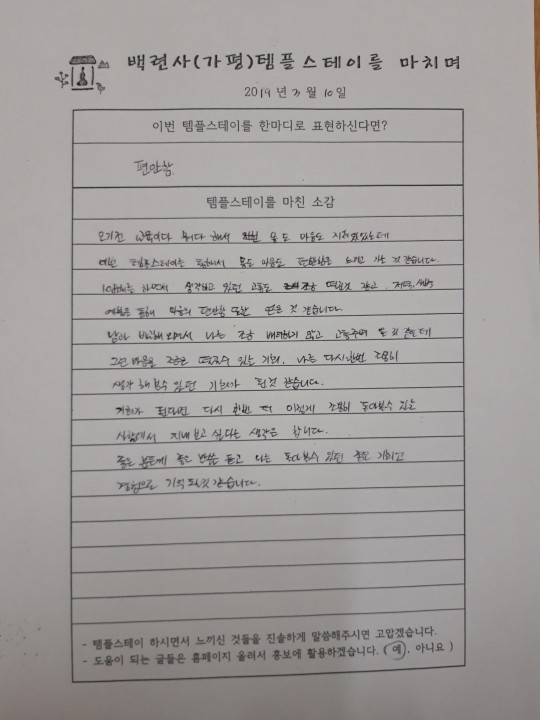 백련사(가평)템플스테이를 마치며
2019년 3월 10일
이번 템플스테이를 한마디로 표현하신다면?
편안함
템플스테이를 마친 소감
오기전 교육이다 뭐다 해서 몸도 마음도 지쳐있었는데
이번 템플스테이를 통해서 몸도 마음도 편안함을 느끼고 가는 것 같습니다.
하면서 생각하고 있던 고통도 조금 떨쳐낸것 같고, 저녁, 새벽
예불을 통해 마음의 편안함 또한 얻은 것 같습니다.
남과 비교해 오면서 나는 조금 배려하지 않고 고통주며 온 것 같은데
그런 마음을 조금은 떨칠수 있는 기회, 나는 다시한번 조용히
생각 해 볼수 있던 기회가 된것 같습니다.
기회가 된다면 다시 한번 더 이렇게 조용히 돌아볼수 있는
사찰에서 지내보고 싶다는 생각을 합니다.
좋은 분들께 좋은 말씀 듣고 나는 돌아볼수 있던 좋은 기회고
경험으로 기억 될것 같습니다.
- 템플스테이 하시면서 느끼신 것들을 진솔하게 말씀해주시면 고맙겠습니다.
- 도움이 되는 글들은 홈페이지 올려서 홍보에 활용하겠습니다. ( 예, 아니요 )